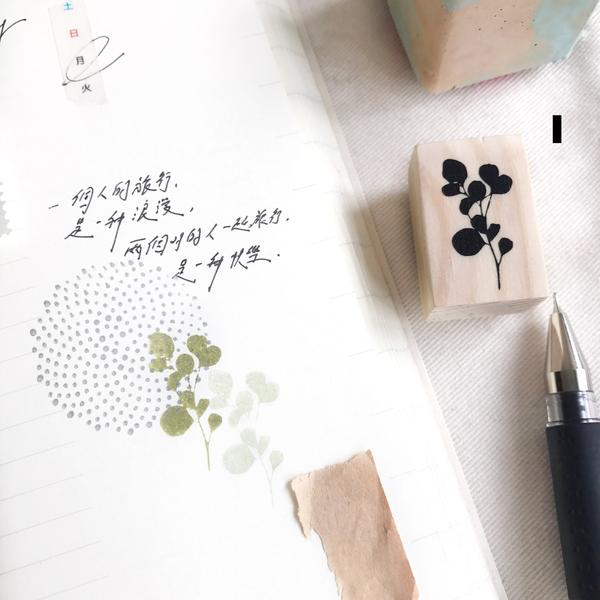 土
日
月
火
一個人的旅行,
是一種浪漫,
兩個以的人一起旅行,
是一種快樂.
I